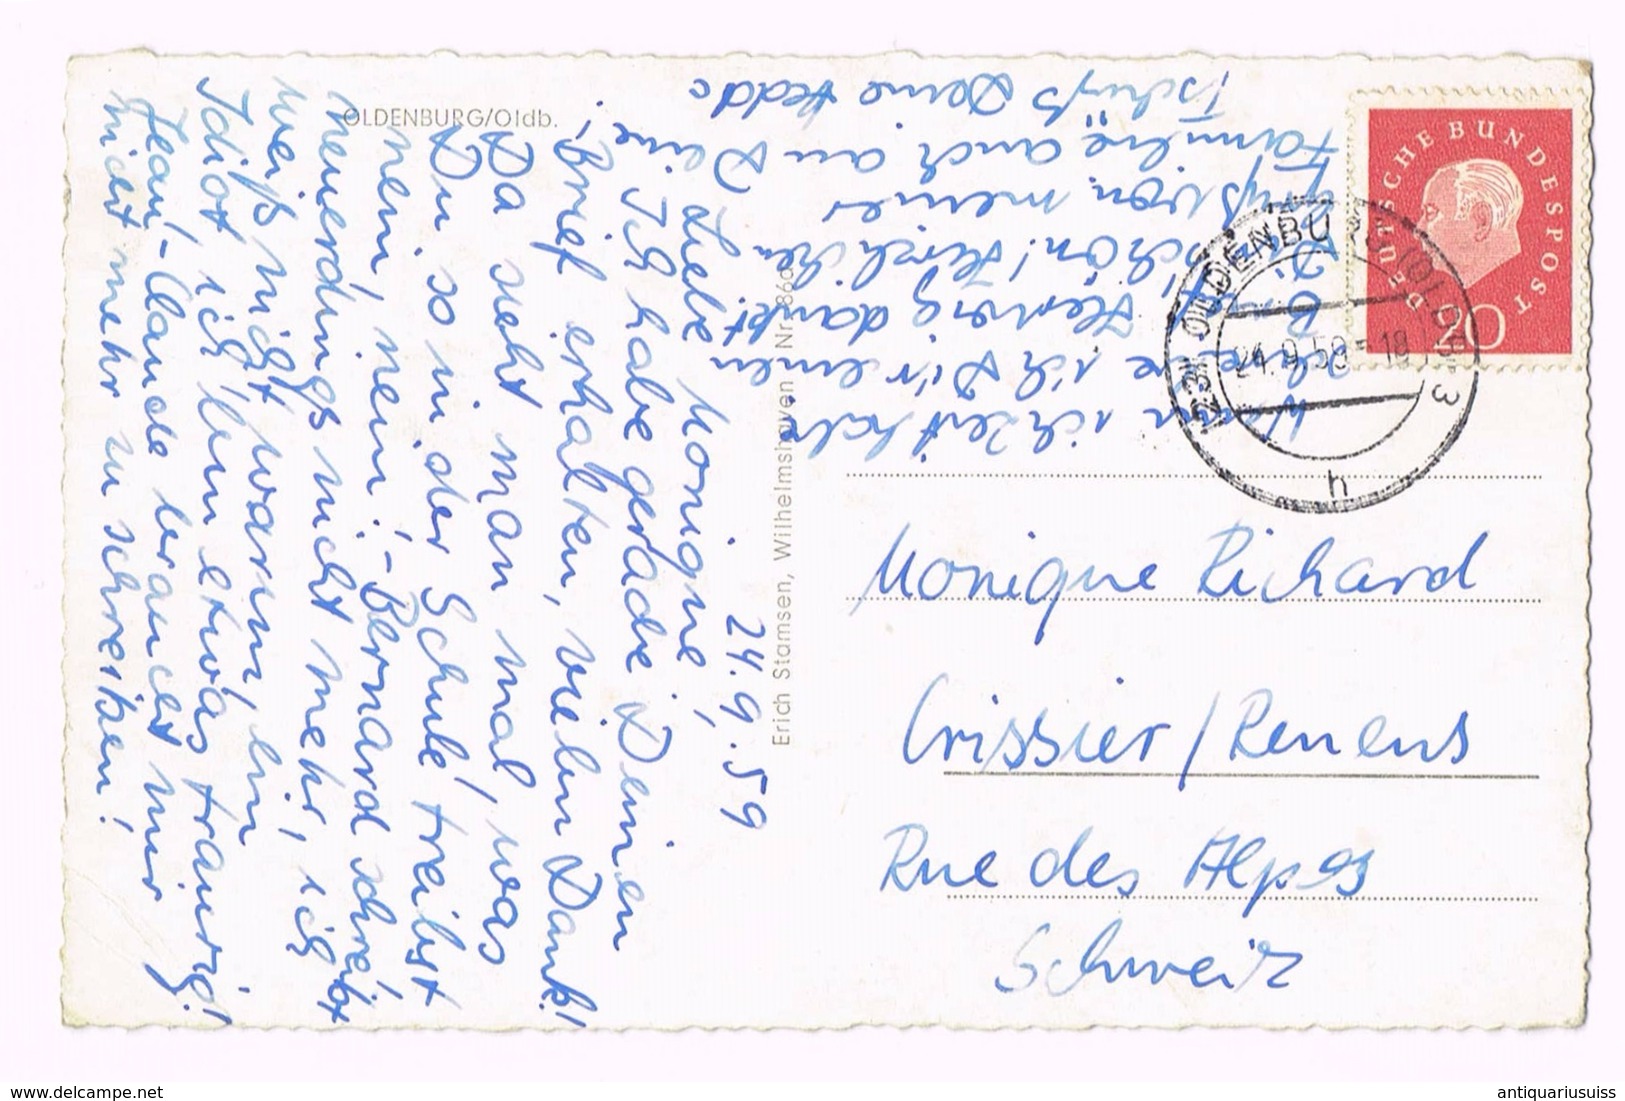 OLDENBURG/Oldb.
24.9.59
Liebe Monique,
Ich habe gerade Deinen
Brief erhalten, vielen Dank!
Da sieht man mal, was
Du so in der Schule treibst
nein, nein! - Bernard schreibt
neuerdings nicht mehr, ich
weiß nicht warum, bin
etwas traurig!
Jean-Claude braucht mir
nicht mehr zu schreiben!
Wenn ich Zeit habe
ich Dir einen
Brief
dankt
schön! Herzlichen
Gruß von meiner
Familie auch an Deine
Tschüß Deine Hedda
Erich Stamsen, Wilhelmshaven Nr.
DEUTSCHE BUNDESPOST
20
(23) OLDENBURG (OLDB) 3
24.9.59-18
h
Monique Richard
Crissier/Renens
Rue des Alpes
Schweiz
antiquariusuiss